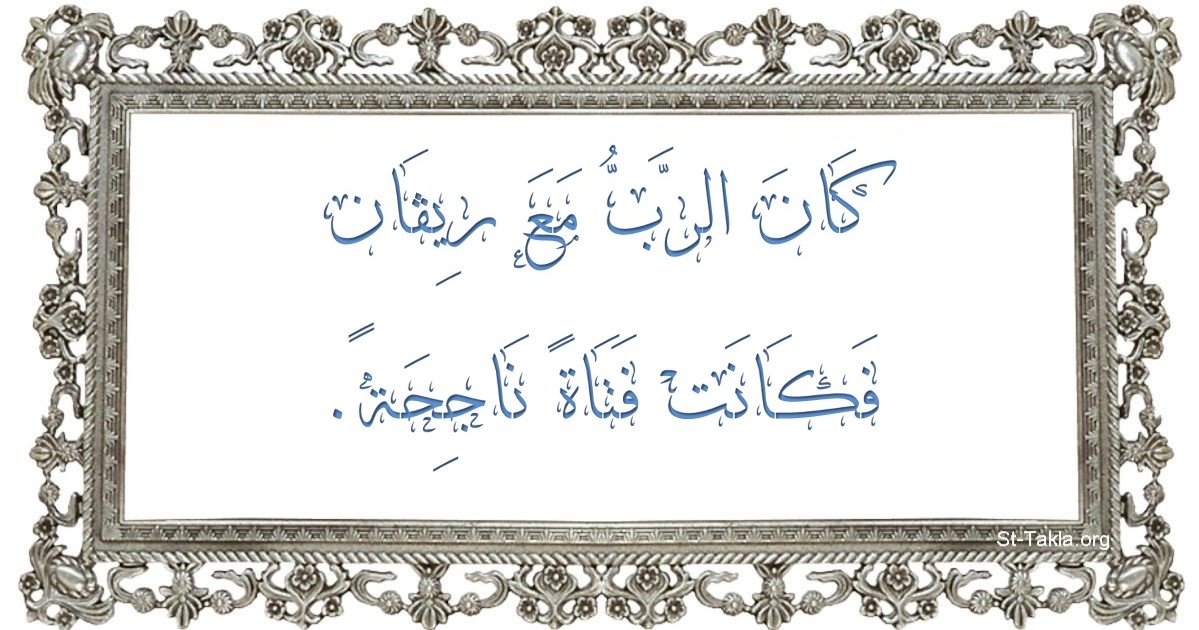 كَانَ الرَّبُّ مَعَ ريِڤَان
فَكَانَت فَتَاةً نَاجِحَةً.
St-Takla.org